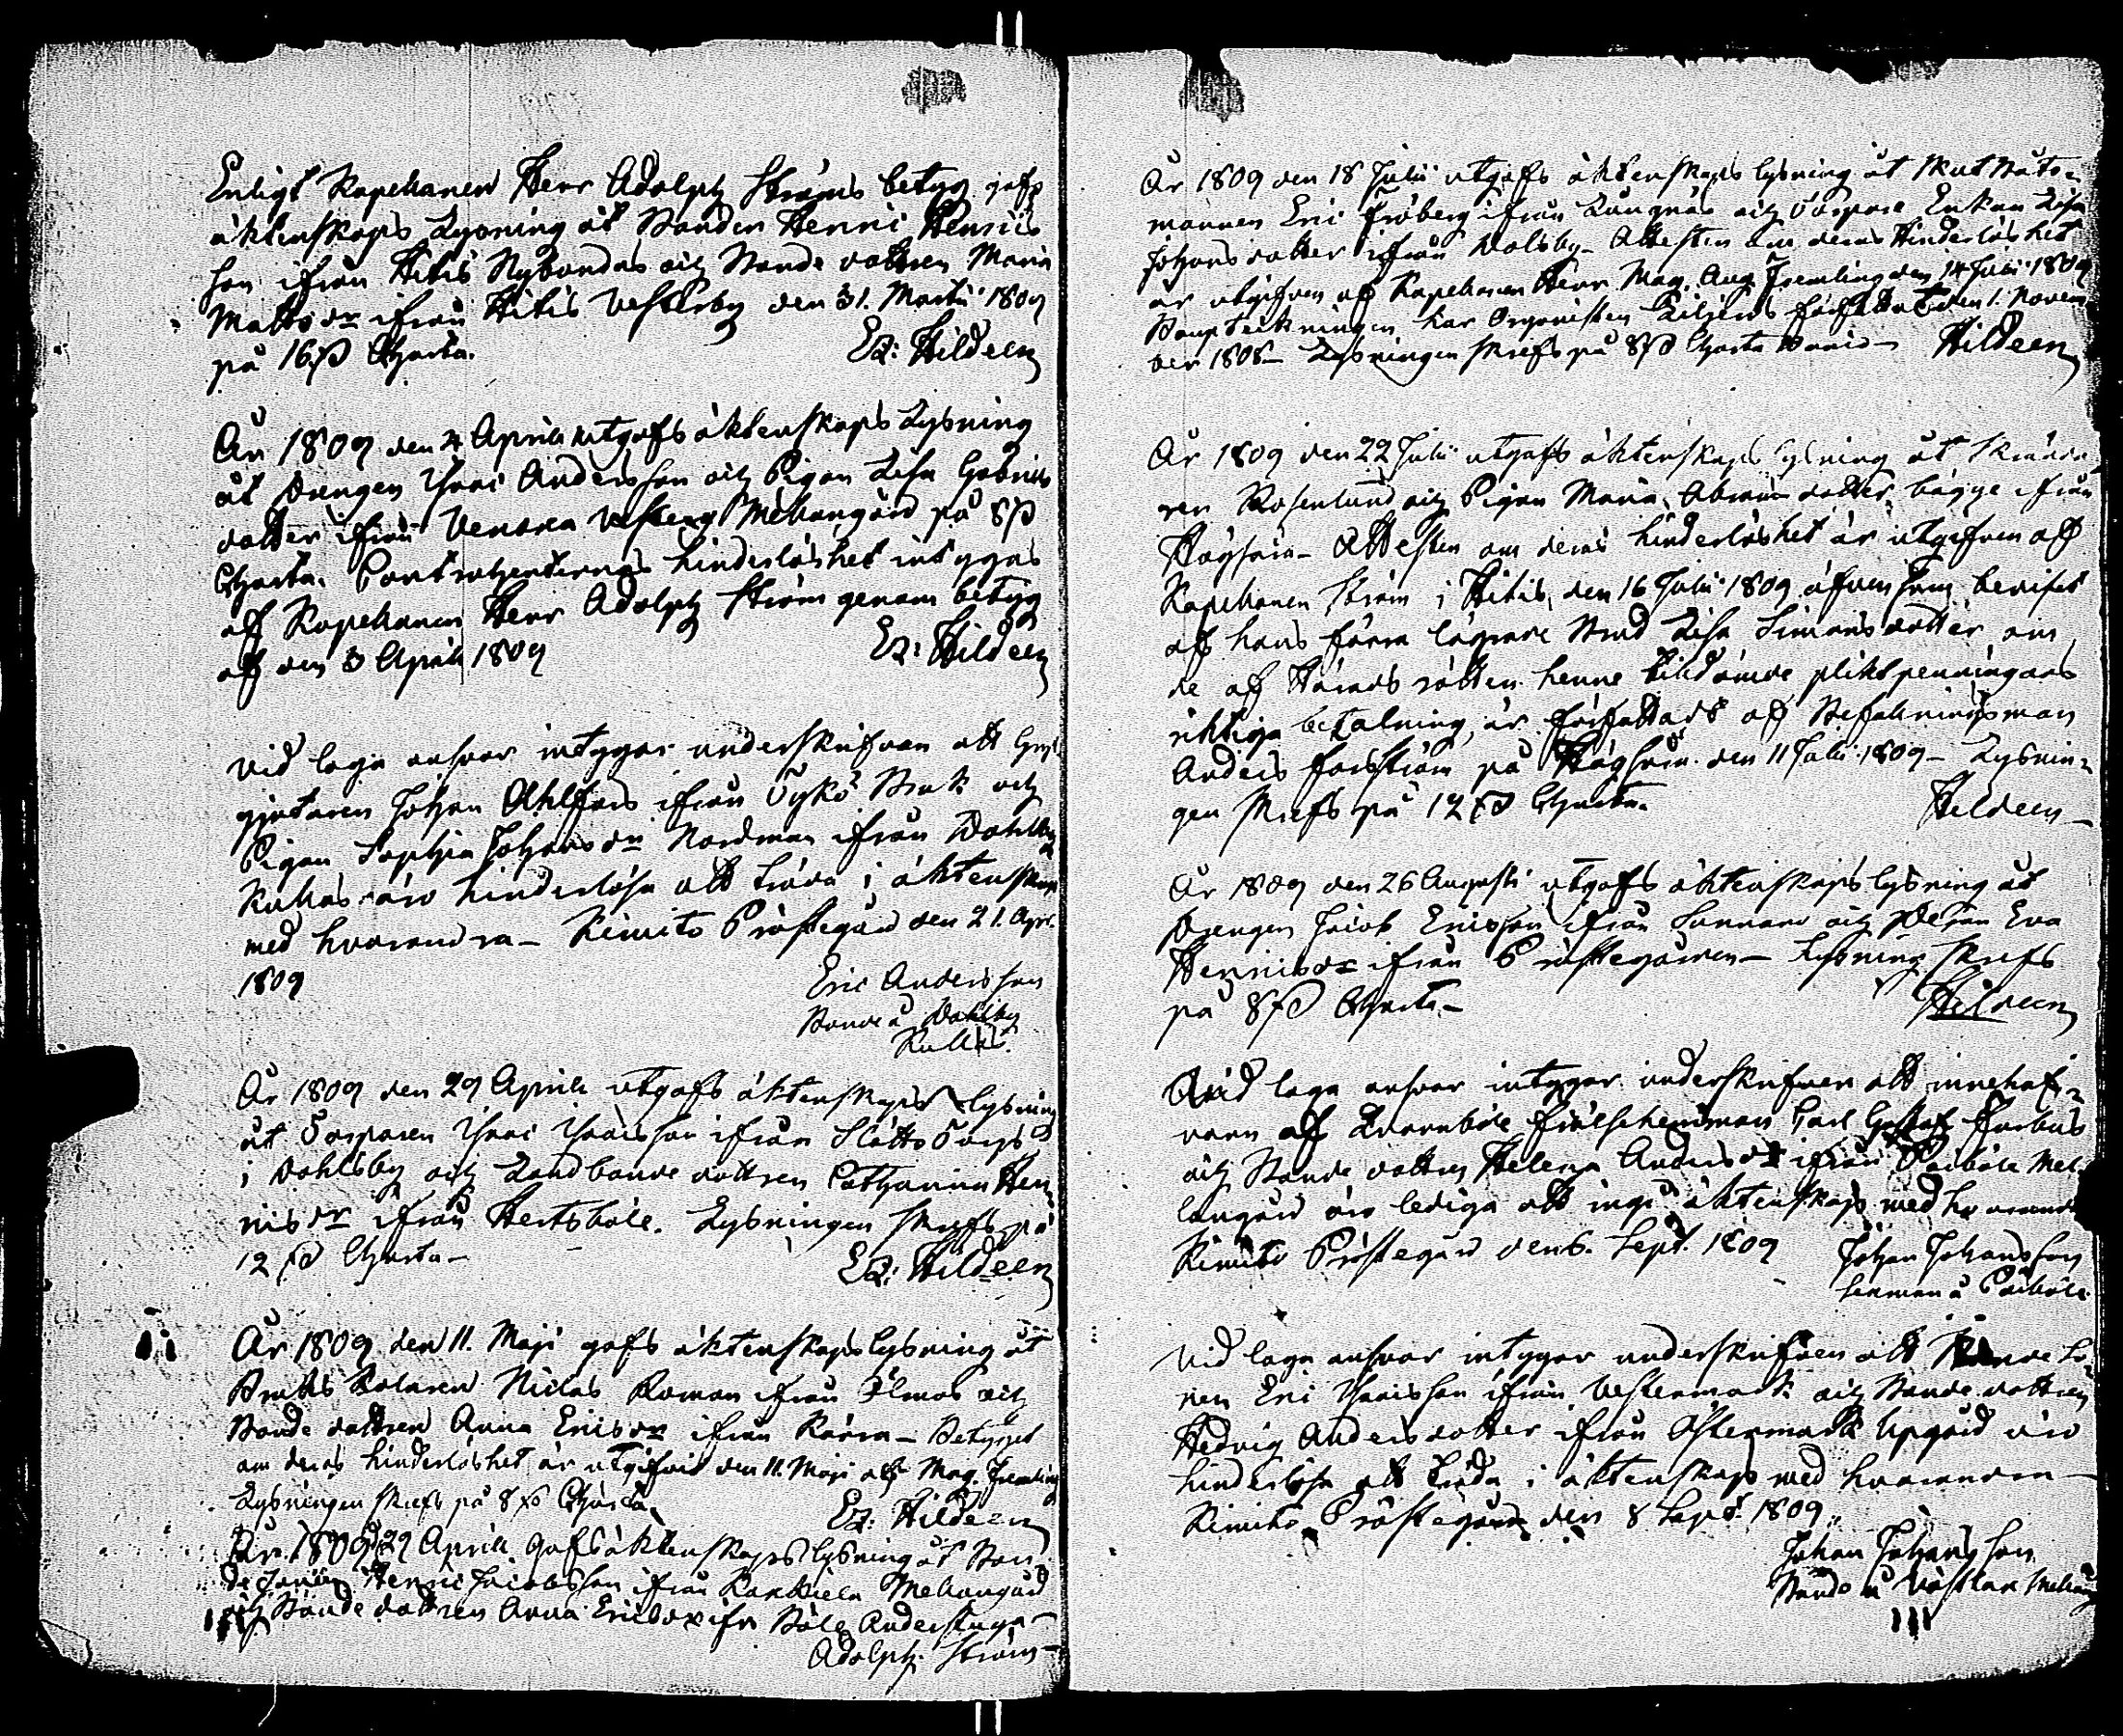 Enligt Kapellanen Herr Adolph Ströms betyg gafs
äktenskaps Lysning åt Bonden Henric Henrics
son ifrån Hitis Nybondas och Bonde dottren Maria
Mattsdr ifrån Hitis Vesterby den 31. Martii 1809
på 16 ß Charta.
Ez: Hildeen
År 1809 den 4 Aprill utgafs äktenskaps Lysning
åt Drengen Isaac Andersson och Pigan Lisa Gabriels
dotter ifrån Venoxa Vesterg Mellangård på 8 ß
Charta. Contrahenternas hinderlöshet intygas
af Kapellanen Herr Adolph Ström genom betyg
af den 3 Aprill 1809
Ez: Hildeen
Vid laga ansvar intygar underskrifvan att
gjutaren Johan Ahlfors ifrån Tykö Bruk och
Pigan Sophia Johansdr Nordman ifrån Dahlby
Kullas äro hinderlösa att träda i äktenskap
med hvarandra – Kimito Prästegård den 21. Apr.
1809
Eric Andersson
Bonde å Dahlby
Kullas.
År 1809 den 29 Aprill utgafs äktenskaps lysning
åt Torparen Isaac Isacsson ifrån Slätts Torp
i Dahlsby och Landbonde dottren Catharina Hen
ricsdr ifrån Hertsböle. Lysningen skrefs på
12 ß Charta –
Ez: Hildeen
År 1809 den 11. Maji gafs äktenskapslysning åt
Bruks Kolaren Niclas Roman ifrån Ölmos och
Bonde dottren Anna Ericsdr ifrån Kärra – Betyget
om deras hinderlöshet är utgifvit den 11. Maji af Mag. Fremling
Lysningen skrefs på 8 ß Charta.
Ez: Hildeen
År 1809 d 29 Aprill gafs äktenskaps lysning åt Bon
de Henric Jacobsson ifrån Mellangård
och Bonde dottren Anna Ericsdr ifr Böle Anderstuga –
Adolph. Ström –
År 1809 den 18 Julii utgafs äktenskaps lysning åt Skutbåts-
mannen Eric Fröberg ifrån Långnäs och Torpare Enkan Lisa
Johansdotter ifrån Dalsby – Attesten om deras Hinderlöshet
är utgifven af Kapellanen Herr Mag. Aug. Fremling den 14 Julii 1809
Boupteckningen har Organisten Kiljens författat den 1. Novem-
ber 1808 – Lysningen skrefs på 8 ß Charta
Hildeen
År 1809 den 22 Julii utgafs äktenskaps lysning åt Skrädda-
ren Rosenlund och Pigan Maria Abramsdotter, bägge ifrån
Högsåra – Attesten om deras hinderlöshet är utgifven af
Kapellanen Ström i Hitis, den 16 Julii 1809 äfvensom beviset
af hans förra lägrade Brud Lisa Simonsdotter om
de af Härads rätten henne tilldömde pliktpenningars
riktiga betalning, är författadt af Befallningsman
Anders Forsström på Högsåra den 11 Julii 1809 – Lysnin-
gen skrefs på 12 ß Charta.
Hildeen –
År 1809 den 26 Augusti utgafs äktenskaps lysning åt
Drengen Jacob Ericsson ifrån Sunnanå och Dejan Eva
Henricsdr ifrån Prästegården – Lysning skrefs
på 8 ß Charta –
Hildeen
Vid laga ansvar intygar underskrifven att innehaf-
varn af Qvarnböle frälsehemman Carl Gustaf Forbus
och Bonde dottren Helena Andersdr ifrån Påiböle Mel-
langård äro lediga att ingå äktenskap med hvarandra
Kimito Prästegård den 6. Sept. 1809
Johan Johansson
sexman å Påiböle.
Vid laga ansvar intygar underskrifven att Bonde So-
nen Eric Isacsson ifrån Vestermark och Bonde dottren
Hedvig Andersdotter ifrån Östermark Uppgård äro
hinderlösa att träda i äktenskap med hvarandra –
Kimito Prästegård den 8 Sept. 1809.
Johan Johansson
Bonde å